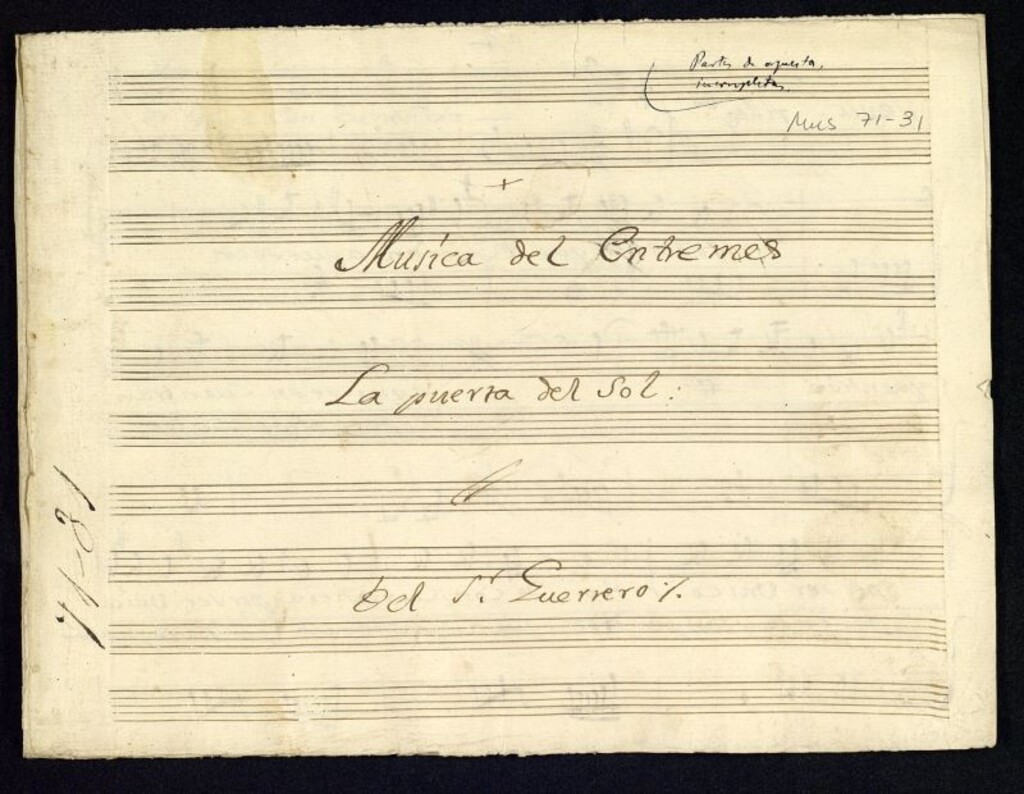 Partes de orquesta,
incompletas.
Mus 71-31
+
Musica del Entremes
La puerta del Sol:
Del Sr. Guerrero %.
71-31